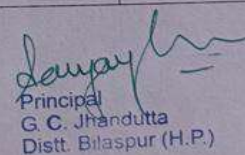 Sanjay
Principal
G. C. Jhandutta
Distt. Bilaspur (H.P.)